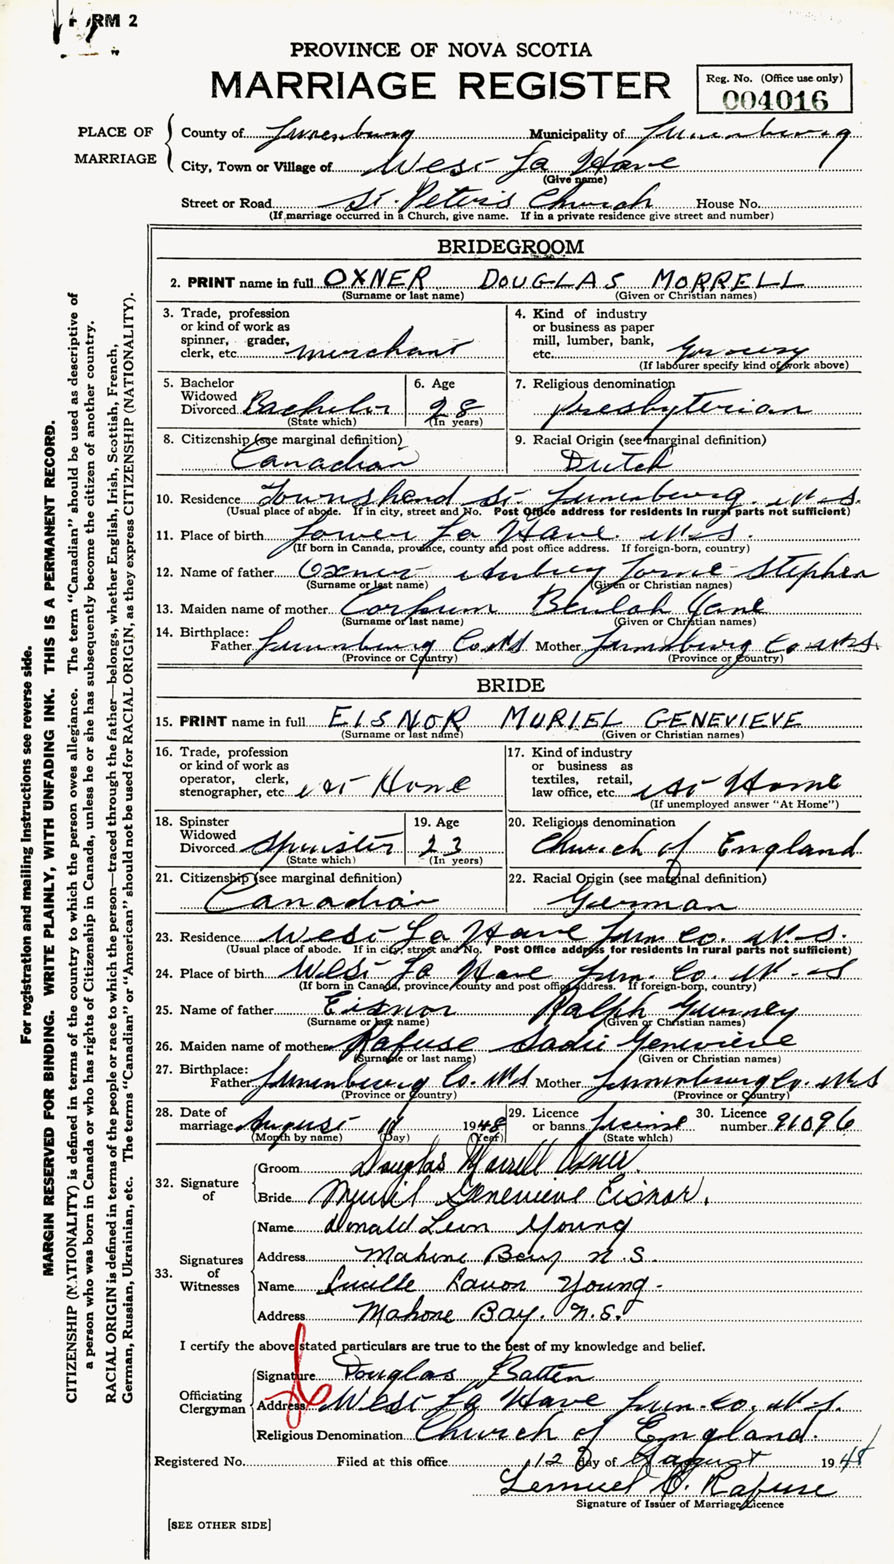 FORM 2
PROVINCE OF NOVA SCOTIA
MARRIAGE REGISTER
Reg. No. (Office use only)
004016
PLACE OF MARRIAGE
County of Lunenburg Municipality of Lunenburg
City, Town or Village of West La Have
(Give name)
Street or Road St. Peter's Church House No.
(If marriage occurred in a Church, give name. If in a private residence give street and number)
BRIDEGROOM
2. PRINT name in full OXNER DOUGLAS MORRELL
(Surname or last name) (Given or Christian names)
3. Trade, profession or kind of work as spinner, grader, clerk, etc. merchant
4. Kind of industry or business as paper mill, lumber, bank, etc. Grocery
(If labourer specify kind of work above)
5. Bachelor Widowed Divorced Bachelor
(State which)
6. Age 28
(In years)
7. Religious denomination Presbyterian
8. Citizenship (see marginal definition) Canadian
9. Racial Origin (see marginal definition) Dutch
10. Residence Townshend St. Lunenburg. N.S.
(Usual place of abode. If in city, street and No. Post Office address for residents in rural parts not sufficient)
11. Place of birth Lower La Have. N.S.
(If born in Canada, province, county and post office address. If foreign-born, country)
12. Name of father Oxner Aubrey Lorne Stephen
(Surname or last name) (Given or Christian names)
13. Maiden name of mother Corkum Beulah Jane
(Surname or last name) (Given or Christian names)
14. Birthplace:
Father Lunenburg Co. N.S Mother Lunenburg Co. N.S.
(Province or Country) (Province or Country)
BRIDE
15. PRINT name in full EISNOR MURIEL GENEVIEVE
(Surname or last name) (Given or Christian names)
16. Trade, profession or kind of work as operator, clerk, stenographer, etc. At Home
17. Kind of industry or business as textiles, retail, law office, etc. At Home
(If unemployed answer "At Home")
18. Spinster Widowed Divorced Spinster
(State which)
19. Age 23
(In years)
20. Religious denomination Church of England
21. Citizenship (see marginal definition) Canadian
22. Racial Origin (see marginal definition) German
23. Residence West La Have Lun. Co. N.S.
(Usual place of abode. If in city, street and No. Post Office address for residents in rural parts not sufficient)
24. Place of birth West La Have Lun. Co. N.S
(If born in Canada, province, county and post office address. If foreign-born, country)
25. Name of father Eisnor Ralph Gurney
(Surname or last name) (Given or Christian names)
26. Maiden name of mother Rafuse Sadie Genevieve
(Surname or last name) (Given or Christian names)
27. Birthplace:
Father Lunenburg Co. N.S Mother Lunenburg Co. N.S
(Province or Country) (Province or Country)
28. Date of marriage August 1948
(Month by name) (Day) (Year)
29. Licence or banns License
(State which)
30. Licence number 91096
32. Signature of
Groom Douglas Morrell Oxner.
Bride Muriel Genevieve Eisnor.
33. Signatures of Witnesses
Name Donald Leon Young
Address Mahone Bay N.S.
Name Lucille Lavon Young
Address Mahone Bay. N.S.
I certify the above stated particulars are true to the best of my knowledge and belief.
Officiating Clergyman
Signature Douglas Batten
Address West La Have Lun. Co. N.S.
Religious Denomination Church of England.
Registered No. Filed at this office 12 day of August 1948
Lemuel Rafuse
Signature of Issuer of Marriage Licence
[SEE OTHER SIDE]
For registration and mailing instructions see reverse side.
MARGIN RESERVED FOR BINDING. WRITE PLAINLY, WITH UNFADING INK. THIS IS A PERMANENT RECORD.
CITIZENSHIP (NATIONALITY) is defined in terms of the country to which the person owes allegiance. The term "Canadian" should be used as descriptive of
a person who was born in Canada or who has rights of Citizenship in Canada, unless he or she has subsequently become the citizen of another country.
RACIAL ORIGIN is defined in terms of the people or race to which the person—traced through the father—belongs, whether English, Irish, Scottish, French,
German, Russian, Ukrainian, etc. The terms "Canadian" or "American" should not be used for RACIAL ORIGIN, as they express CITIZENSHIP (NATIONALITY).